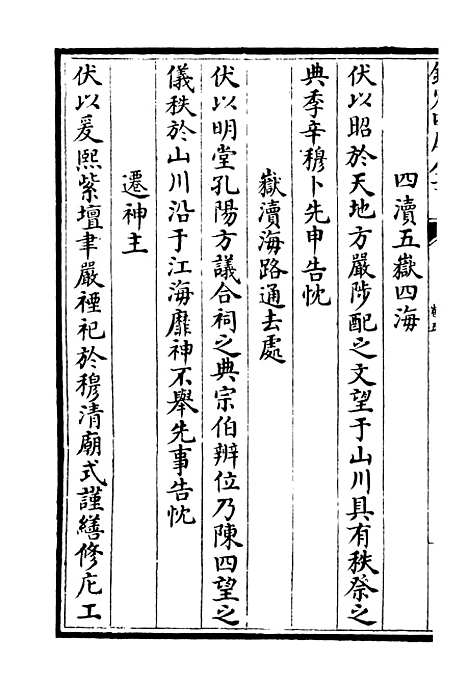 四瀆五嶽四海
伏以昭於天地方嚴陟配之文望于山川具有秩祭之
典季辛穆卜先申告忱
嶽瀆海路通去處
伏以明堂孔陽方議合祠之典宗伯辨位乃陳四望之
儀秩於山川沿于江海靡神不舉先事告忱
遷神主
伏以爰熙紫壇聿嚴禋祀於穆清廟式謹繕修庀工